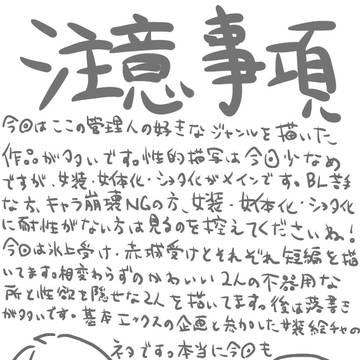 注意事項
今回はここの管理人の好きなジャンルを描いた
作品が多いです。性的描写は今回少なめ
ですが、女装・女体化・ショタ化がメインです。BL苦手
な方、キャラ崩壊NGの方、女装・女体化・ショタ化
に耐性がない方は見るのを控えてくださいね!
今回は氷上受け・赤城受けとそれぞれ短編を描
いてます。相変わらずのかわいい2人の不器用な
所と性欲を隠せな2人を描いてます。後は落書き
が多いです。基本エックスの企画と参加した女装絵チャの
ネタです。本当に今回も